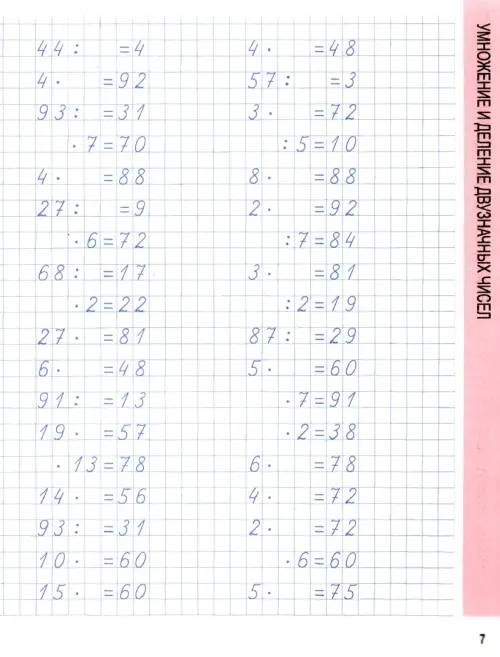 44 : = 4
4 · = 92
93 : = 31
· 7 = 70
4 · = 88
27 : = 9
· 6 = 72
68 : = 17
· 2 = 22
27 · = 81
6 · = 48
91 : = 13
19 · = 57
· 13 = 78
14 · = 56
93 : = 31
10 · = 60
15 · = 60
4 · = 48
57 : = 3
3 · = 72
: 5 = 10
8 · = 88
2 · = 92
: 7 = 84
3 · = 81
: 2 = 19
87 : = 29
5 · = 60
· 7 = 91
· 2 = 38
6 · = 78
4 · = 72
2 · = 72
· 6 = 60
5 · = 75
УМНОЖЕНИЕ И ДЕЛЕНИЕ ДВУЗНАЧНЫХ ЧИСЕЛ
7